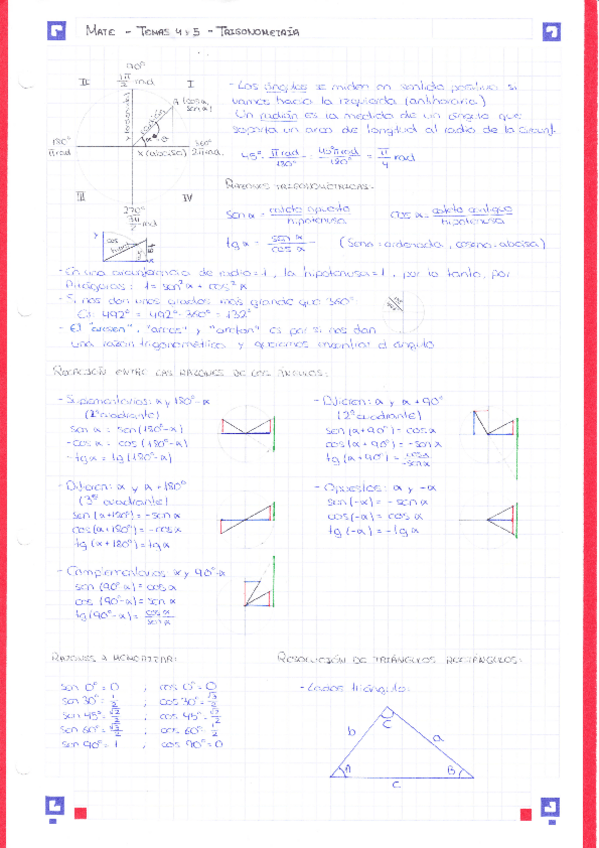 MATE - TEMAS 4 y 5 - TRIGONOMETRÍA
II
I
A (cos α, sen α)
y (ordenada)
radián
α
x (abcisa)
180°
π rad
360°
2π rad
III
IV
270°
- Los ángulos se miden en sentido positivo si
vamos hacia la izquierda (antihorario)
Un radián es la medida de un ángulo que
soporta un arco de longitud al radio de la circunf.
45° · π rad / 180° = 45° π rad / 180° = π/4 rad
RAZONES TRIGONOMÉTRICAS:
sen α = cateto opuesto / hipotenusa
cos α = cateto contiguo / hipotenusa
tg α = sen α / cos α
(Seno = ordenada, coseno = abcisa)
- En una circunferencia de radio = 1, la hipotenusa = 1, por lo tanto, por
Pitágoras: 1 = sen² α + cos² α
- Si nos dan unos grados más grande que 360°
Ej: 492° = 492° - 360° = 132°
- El "arcsen", "arcos" y "arctan" es por si nos dan
una razón trigonométrica y queremos encontrar el ángulo
RELACIÓN ENTRE LAS RAZONES DE LOS ÁNGULOS:
- Suplementarios: α y 180° - α
(2º cuadrante)
sen α = sen (180° - α)
- cos α = cos (180° - α)
- tg α = tg (180° - α)
- Difieren: α y α + 90°
(2º cuadrante)
sen (α + 90°) = cos α
cos (α + 90°) = - sen α
tg (α + 90°) = cos α / - sen α
- Difieren: α y α + 180°
(3º cuadrante)
sen (α + 180°) = - sen α
cos (α + 180°) = - cos α
tg (α + 180°) = tg α
- Opuestos: α y - α
sen (- α) = - sen α
cos (- α) = cos α
tg (- α) = - tg α
- Complementarios α y 90° - α
sen (90° - α) = cos α
cos (90° - α) = sen α
tg (90° - α) = cos α / sen α
RAZONES A MEMORIZAR:
sen 0° = 0 ; cos 0° = 0
sen 30° = 1/2 ; cos 30° = √3/2
sen 45° = √2/2 ; cos 45° = √2/2
sen 60° = √3/2 ; cos 60° = 1/2
sen 90° = 1 ; cos 90° = 0
RESOLUCIÓN DE TRIÁNGULOS RECTÁNGULOS:
- Lados triángulo:
C
b
a
A
B
c